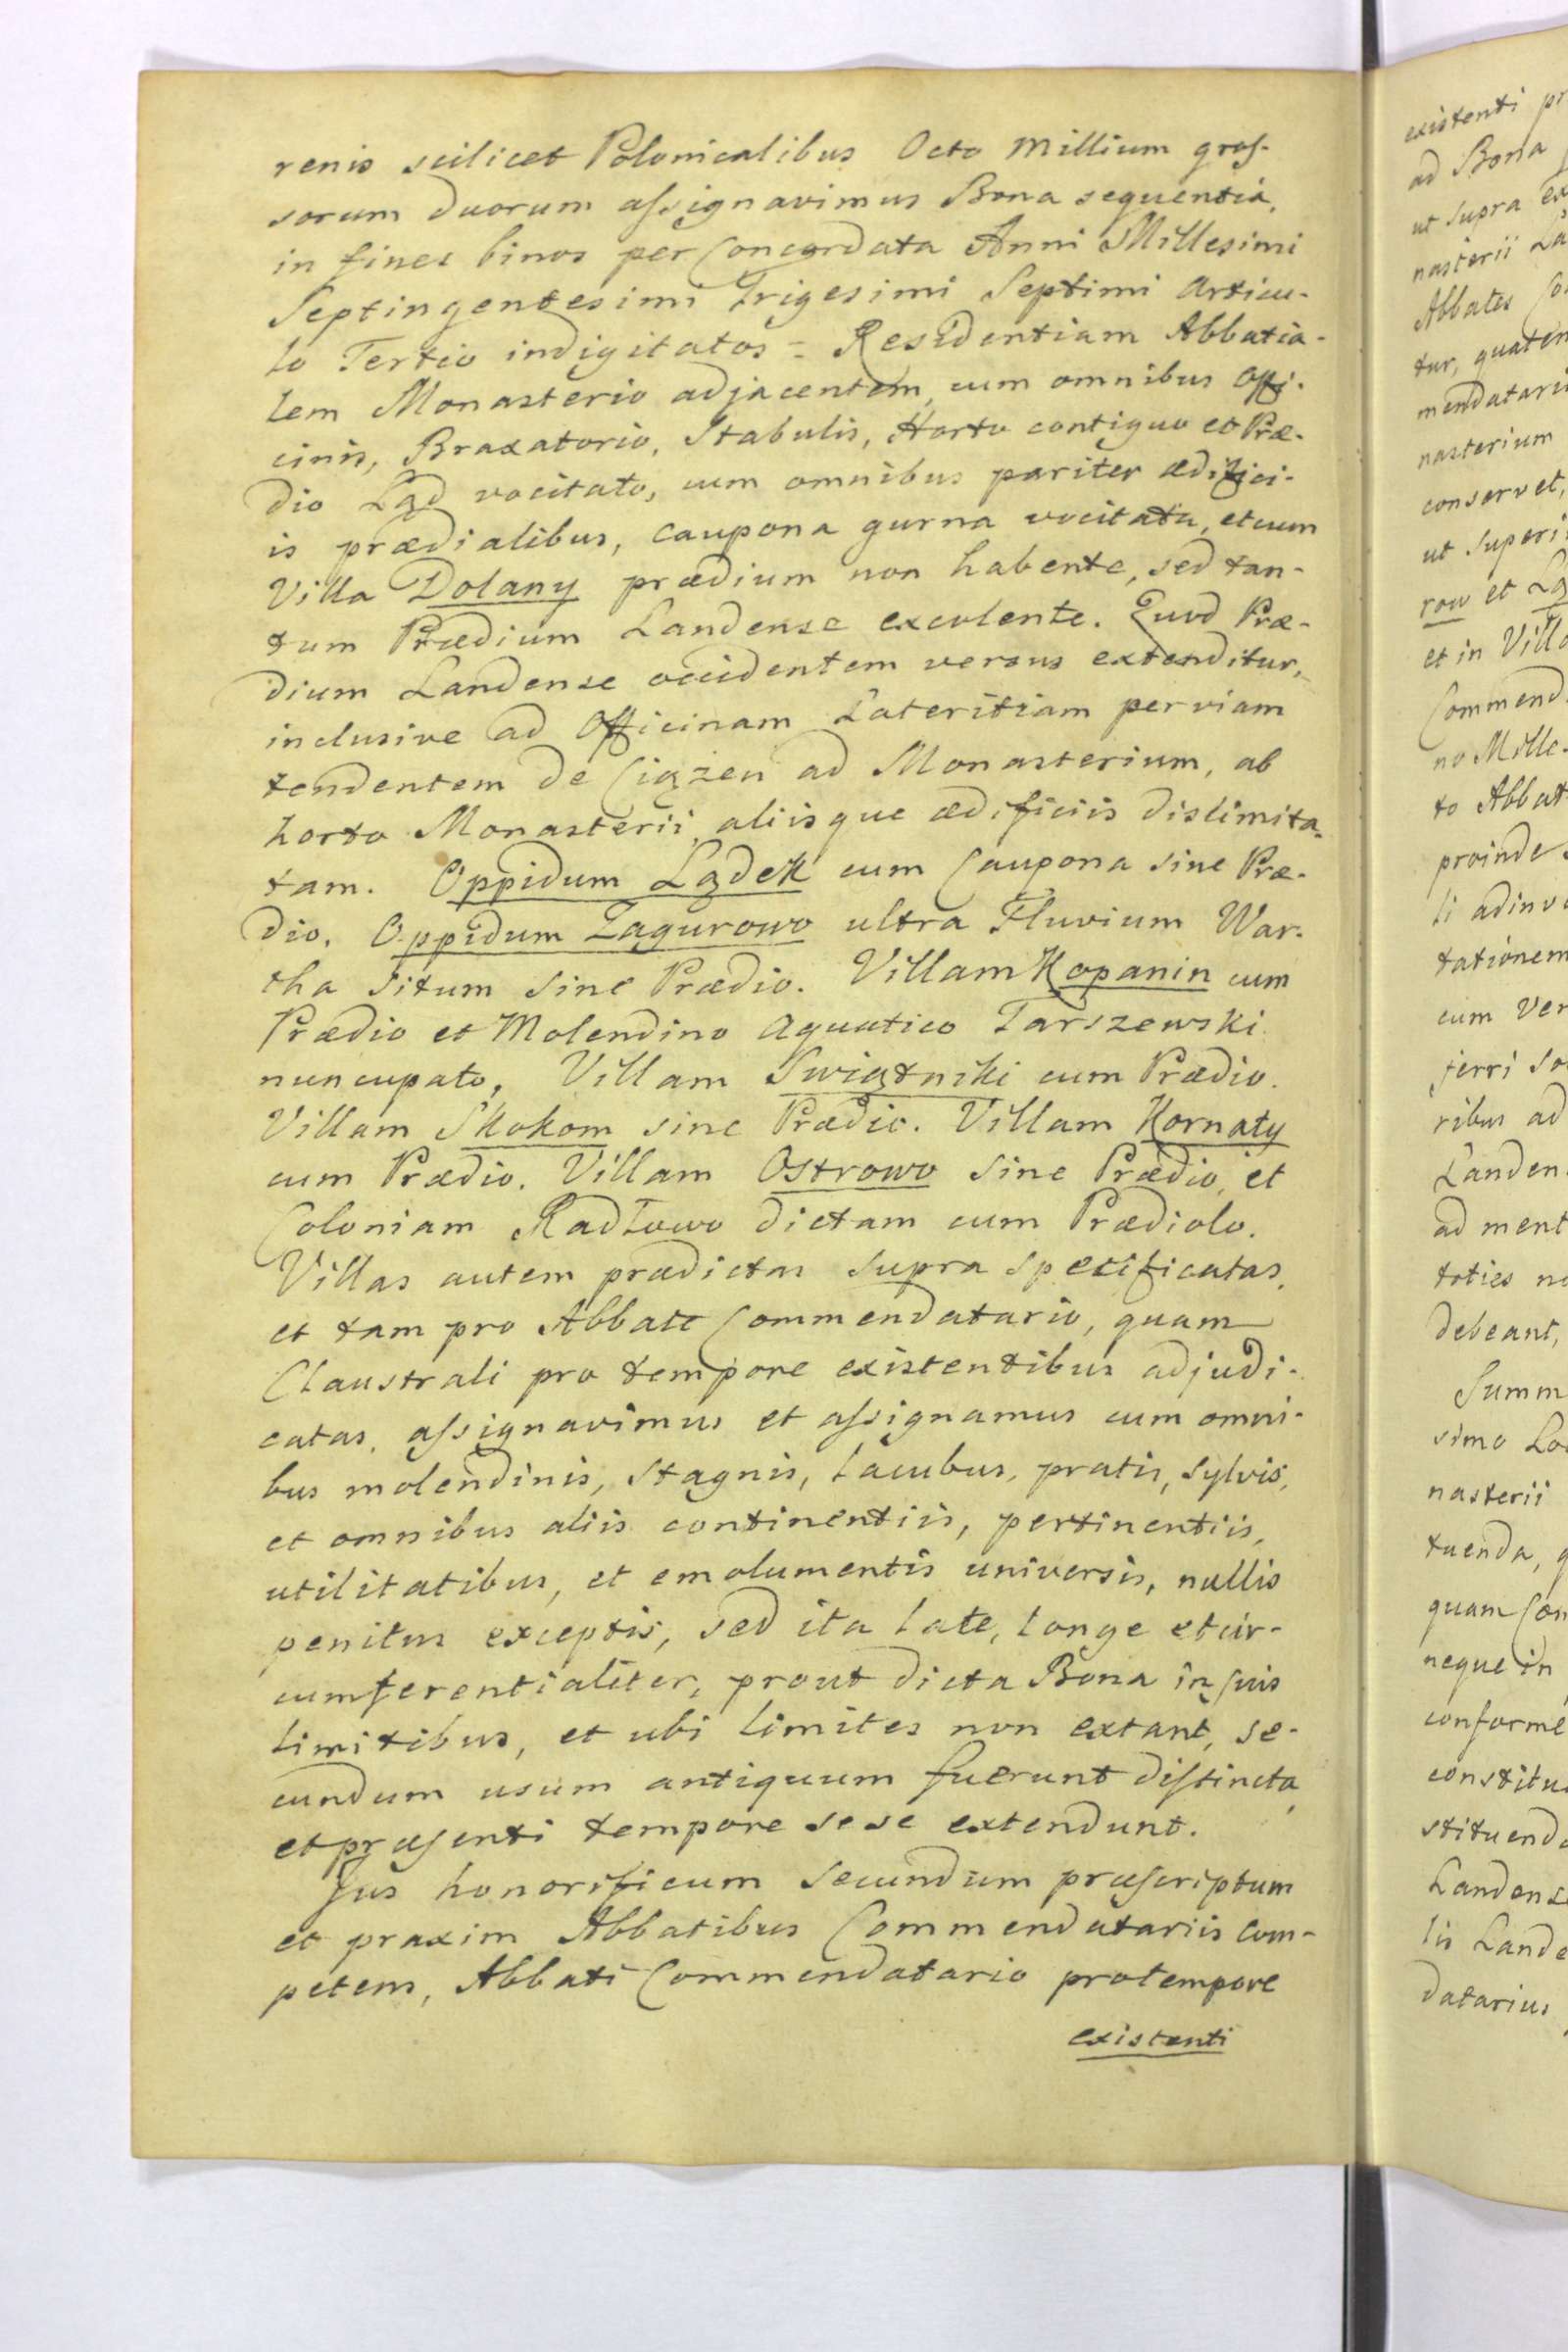 renis scilicet Polonicalibus Octo Millium gros-
sorum duorum assignavimus Bona sequentia,
in fines binos per Concordata Anni Millesimi
Septingentesimi Trigesimi Septimi Articu-
lo Tertio indigitatos = Residentiam Abbatia-
lem Monasterio adjacentem, cum omnibus Offi-
cinis, Braxatorio, Stabulis, Horto contiguo et Præ-
dio Ląd vocitato, cum omnibus pariter ædifici-
is prædialibus, caupona gurna vocitata, et cum
Villa Dolany prædium non habente, sed tan-
tum Prædium Landense excolente. Quod Præ-
dium Landense occidentem versus extenditur,
inclusive ad Officinam Lateritiam per viam
tendentem de Ciążen ad Monasterium, ab
horto Monasterii, aliisque ædificiis dislimita-
tam. Oppidum Lądek cum Caupona sine Præ-
dio. Oppidum Zagurowo ultra Fluvium War-
tha situm sine Prædio. Villam Kopanin cum
Prædio et Molendino aquatico Tarszewski
nuncupato, Villam Swiątniki cum Prædio.
Villam Skokom sine Prædio. Villam Kornaty
cum Prædio. Villam Ostrowo sine Prædio, et
Coloniam Radłowo dictam cum Prædiolo.
Villas autem prædictas supra specificatas,
et tam pro Abbate Commendatario, quam
Claustrali pro tempore existentibus adjudi-
catas, assignavimus et assignamus cum omni-
bus molendinis, stagnis, lacubus, pratis, sylvis,
et omnibus aliis continentiis, pertinentiis,
utilitatibus, et emolumentis universis, nullis
penitus exceptis, sed ita late, longe et cir-
cumferentialiter, prout dicta Bona in suis
limitibus, et ubi limites non extant, se-
cundum usum antiquum fuerunt distincta,
et præsenti tempore sese extendunt.
Jus honorificum secundum præscriptum
et praxim Abbatibus Commendatariis com-
petens, Abbati Commendatario pro tempore
existenti
existenti
ad Bona
ut supra
nasterii
Abbates
tur,
nasterium
conservet,
row et
et in
to
proinde
cum
ferri
ribus ad
ad
toties
debeant,
nasterii
tuenda,
quam
neque in
datarius